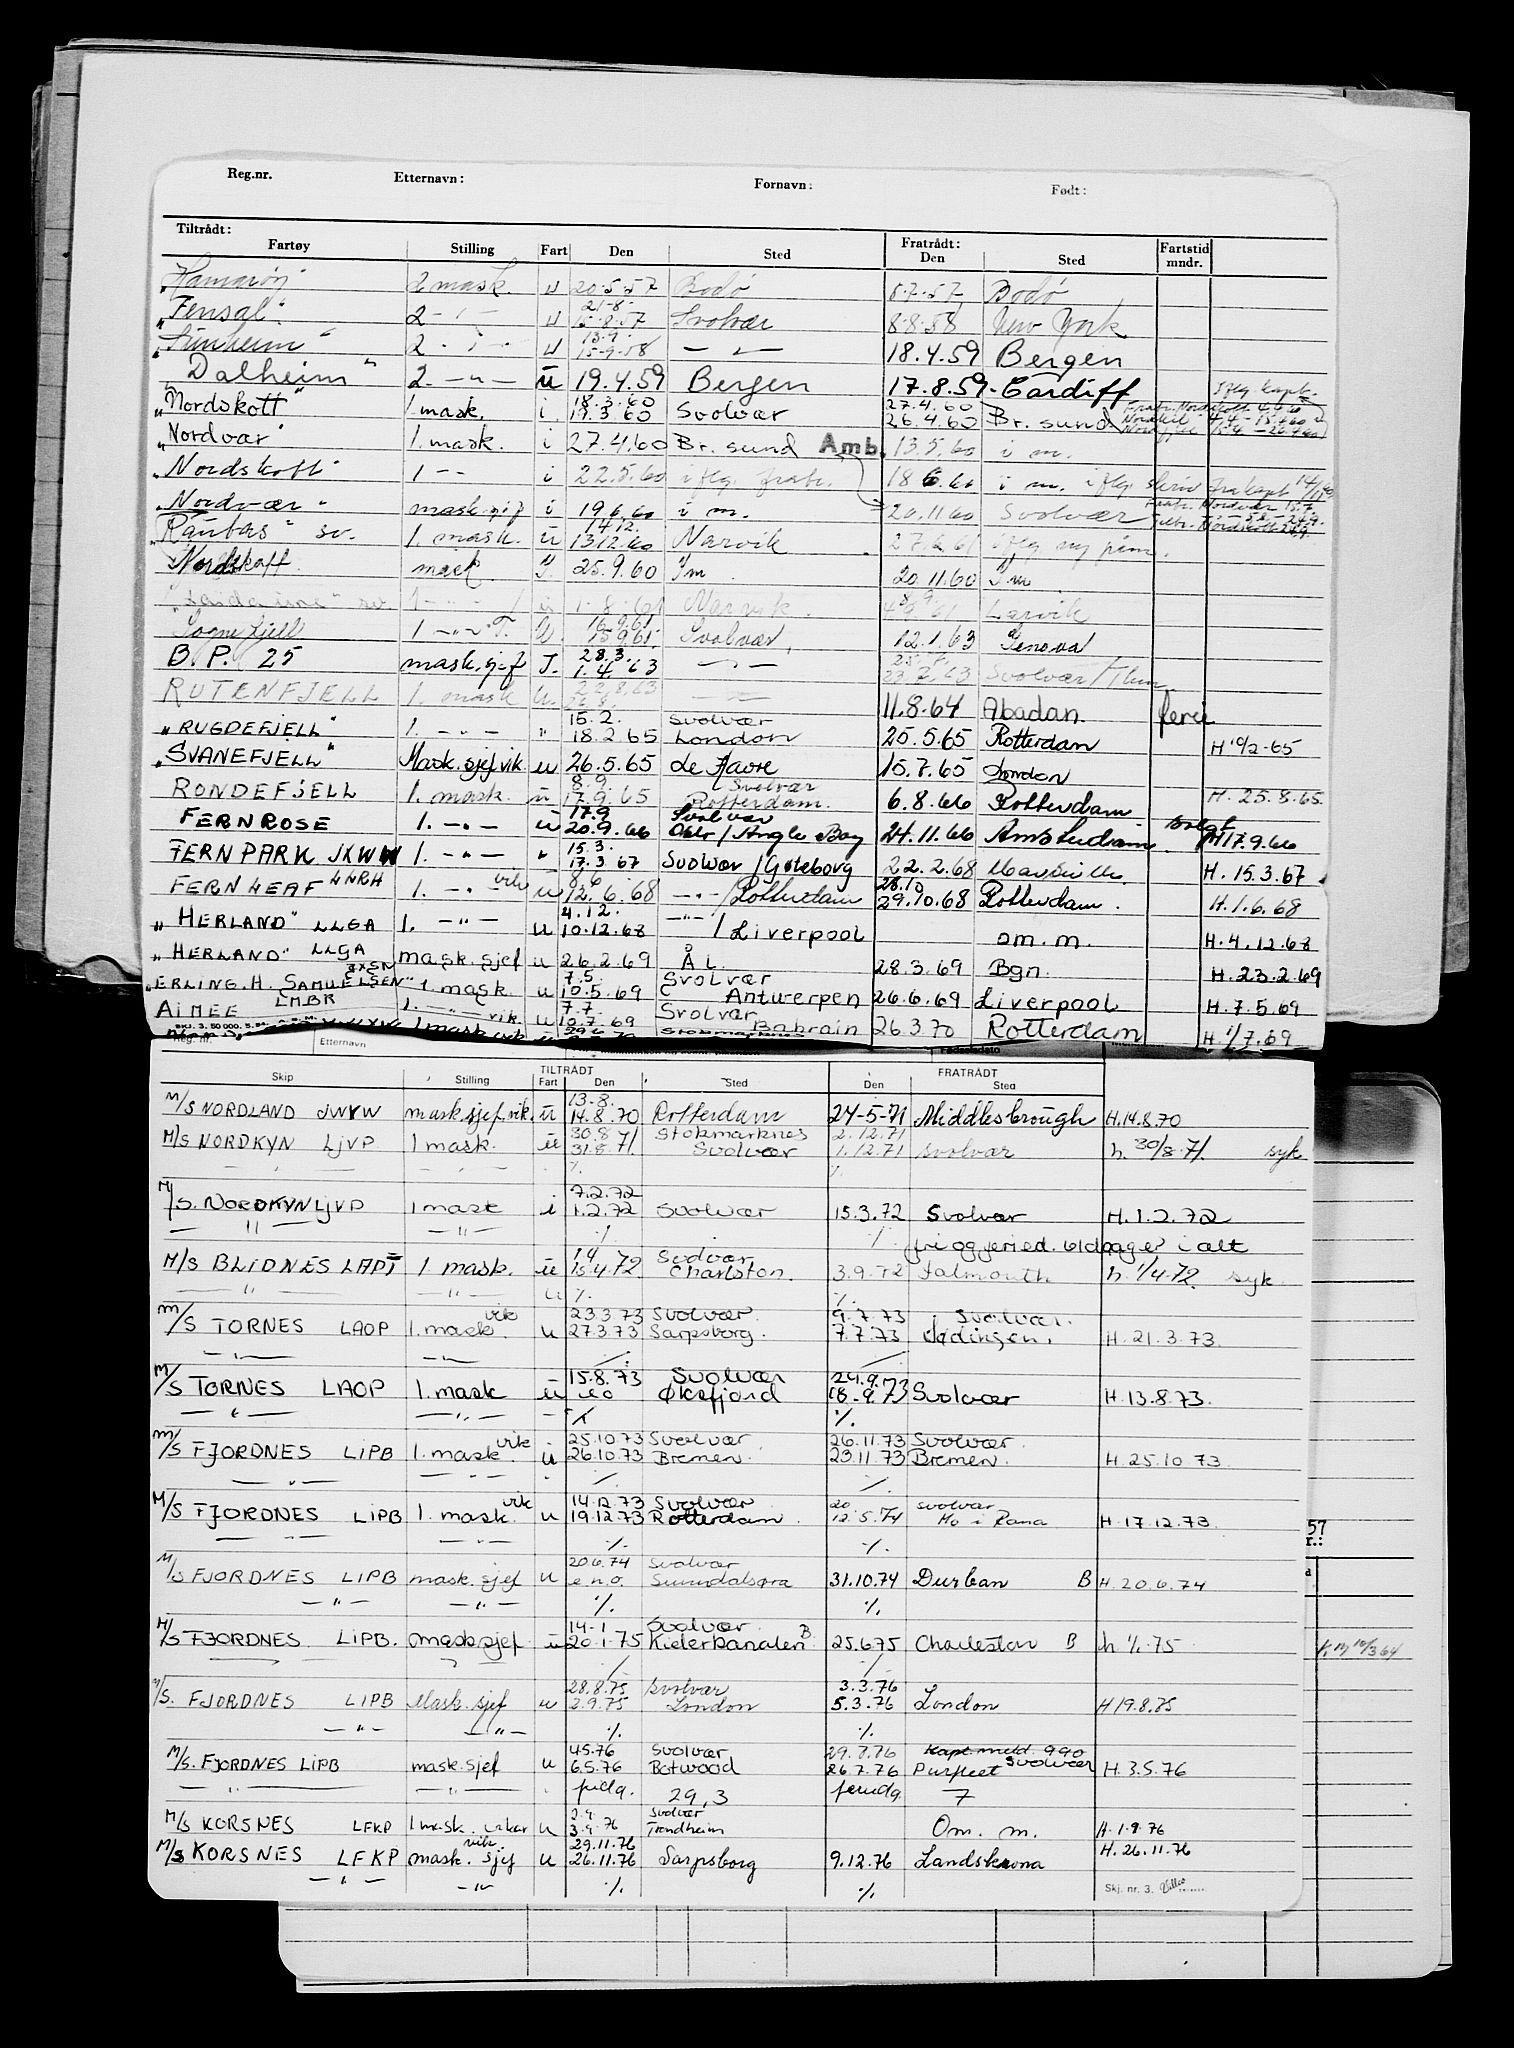 Reg.nr. Etternavn: Fornavn: Født:
Tiltrådt: Fratrådt: Fartstid
Fartøy Stilling Fart Den Sted Den Sted mndr.
"Hamarøy" 2 mask. u 20.5.57 Bodø 8.7.57 Bodø
"Jensal" 2 - " - u 21-8. 15.8.57 Svolvær 8.8.58 New York
2 - " - u 13.9. 15-9.58 — " — 18.4.59 Bergen
"Dalheim" 2. - " - u 19.4.59 Bergen 17.8.59 - Cardiff
"Nordskott" 1 mask. i. 18.3.60 19.3.60 Svolvær 27.4.60 26.4.60 Br. sund
"Nordvar" 1. mask. i 27.4.60 Br. sund Amb. 13.5.60 i m.
"Nordskott" 1 - - i 22.5.60 i flg. fratr. 18 6.60 i m. i flg.
"Nordvær" mask.sjef i 19.6.60 i m. 20.11.60 Svolvær
"Raubas" sv. 1. mask. u 14/12. 13.12.60 Narvik
Nordskott. mask. I. 25.9.60 I m 20.11.60 I m
sv. 1 - " - u 1.8.61 Narvik. Larvik
Sognefjell 1 - " - T. U. 16.9.61 15.9.61. Svolvær, 12.1.63 Genova
B. P. 25 mask.sjef I. 28.3. 1.4.63 — " — Svolvær/
RUTENFJELL 1. mask U. 22.8.63 — " — 11.8.64 Abadan ferie
"RUGDEFJELL" 1. - " - " 15.2. 18.2.65 Svolvær London 20.5.65 Rotterdam H 10/2-65
"SVANEFJELL" Mask.sjef vik u 26.5.65 Le Havre 15.7.65 London
RONDEFJELL 1. mask. u 8.9. 17.9.65 Svolvær Rotterdam. 6.8.66 Rotterdam H. 25.8.65.
FERNROSE 1. - " - u 17.9 20.9.66 Svolvær Oslo/Angle Bay 24.11.66 Amsterdam solgt H17.9.66
FERN PARK JXWW 1. - " - " 15.3. 17.3.67 Svolvær/Gøteborg 22.2.68 Marseille. H. 15.3.67.
FERN LEAF LNRH 1. - " - vik u 8.6 12.6.68 - " - /Rotterdam 28.10 29.10.68 Rotterdam. H.1.6.68
"HERLAND" LLGA 1. - " - u 4.12. 10.12.68 - " - / Liverpool om.m. H.4.12.68
"HERLAND" LLGA mask.sjef u 26.2.69 ÅL 28.3.69 Bgn. H.23.2.69
"ERLING H. SAMUELSEN" JXSN 1 mask. u 7.5. 10.5.69 Svolvær Antwerpen 26.6.69 Liverpool H.7.5.69
AIMEE LMBR 1. - " - vik. u 7.7. 10.7.69 Svolvær Bahrain 26.3.70 Rotterdam H. 1/7.69
1 mask vik u 29.6 Stokmarknes
Reg. nr. Etternavn
TILTRÅDT FRATRÅDT
Skip Stilling Fart Den Sted Den Sted
M/S NORDLAND JWYW mask.sjef.vik. u 13-8. 14.8.70 Rotterdam 24-5-71 Middlesbrough H.14.8.70
M/S NORDKYN LJVP 1 mask. u 30.8 31.8.71. Stokmarknes Svolvær 2.12.71 1.12.71 svolvær h. 30/8.71. syk
— " — — " — ·/. ·/.
M/S. NORDKYN LJVP 1 mask i 7.2.72 1.2.72 Svolvær 15.3.72 Svolvær H.1.2.72
— " — — " — ·/. ·/.
M/S BLIDNES LAPI 1 mask. u 1.4 15.4.72 Svolvær Charlston. 3.9.72 Falmouth h. 1/4.72 syk.
— " — — " — u ·/. ·/.
M/S TORNES LAOP 1. mask. vik u 23.3.73 27.3.73 Svolvær. Sarpsborg. 9.7.73 7.7.73 Svolvær. Lødingen. H.21.3.73.
— " — — " — ·/. ·/.
M/S TORNES LAOP 1. mask u 15.8.73 u o Svolvær Øksfjord 24.9. 18.9.73 Svolvær H.13.8.73.
— " — — " — - ·/. ·/.
M/S FJORDNES LIPB 1. mask. vik u 25.10.73 26.10.73 Svolvær. Bremen. 26.11.73 23.11.73 Svolvær. Bremen. H.25.10.73.
— " — — " — ·/. ·/.
M/S FJORDNES LIPB 1. mask. vik u 14.12.73 19.12.73 Svolvær Rotterdam. 20 12.5.74 svolvær Mo i Rana H.17.12.73.
— " — — " — ·/. ·/.
M/S FJORDNES LIPB mask.sjef u 20.6.74 e n.o. Svolvær Sunndalsøra 31.10.74 Durban B H.20.6.74
— " — — " — ·/. ·/.
M/S FJORDNES LIPB. mask sjef u 14-1 20.1.75 Svolvær. Kielerkanalen B. 25.6.75 Charleston B h 1/1.75
·/. ·/.
M/S. FJORDNES LIPB Mask.sjef u 28.8.75 2.9.75 svolvær London 3.3.76 5.3.76 London H 19.8.75
— " — — " — ·/. ·/.
M/S. FJORDNES LIPB mask.sjef u 4.5.76 6.5.76 Svolvær Botwood 29.7.76 26.7.76 Kapt.meld. 990 Purfleet Svolvær H.3.5.76
— " — — " — 29,3 7
M/S KORSNES LFKP 1 mask. u 2.9. 3.9.76 Svolvær Trondheim Om. m. H.1.9.76
M/S KORSNES LFKP mask. sjef vik. u 29.11.76 26.11.76 Sarpsborg 9.12.76 Landskrona H.26.11.76
— " — — " — ·/. ·/. Skj. nr. 3.